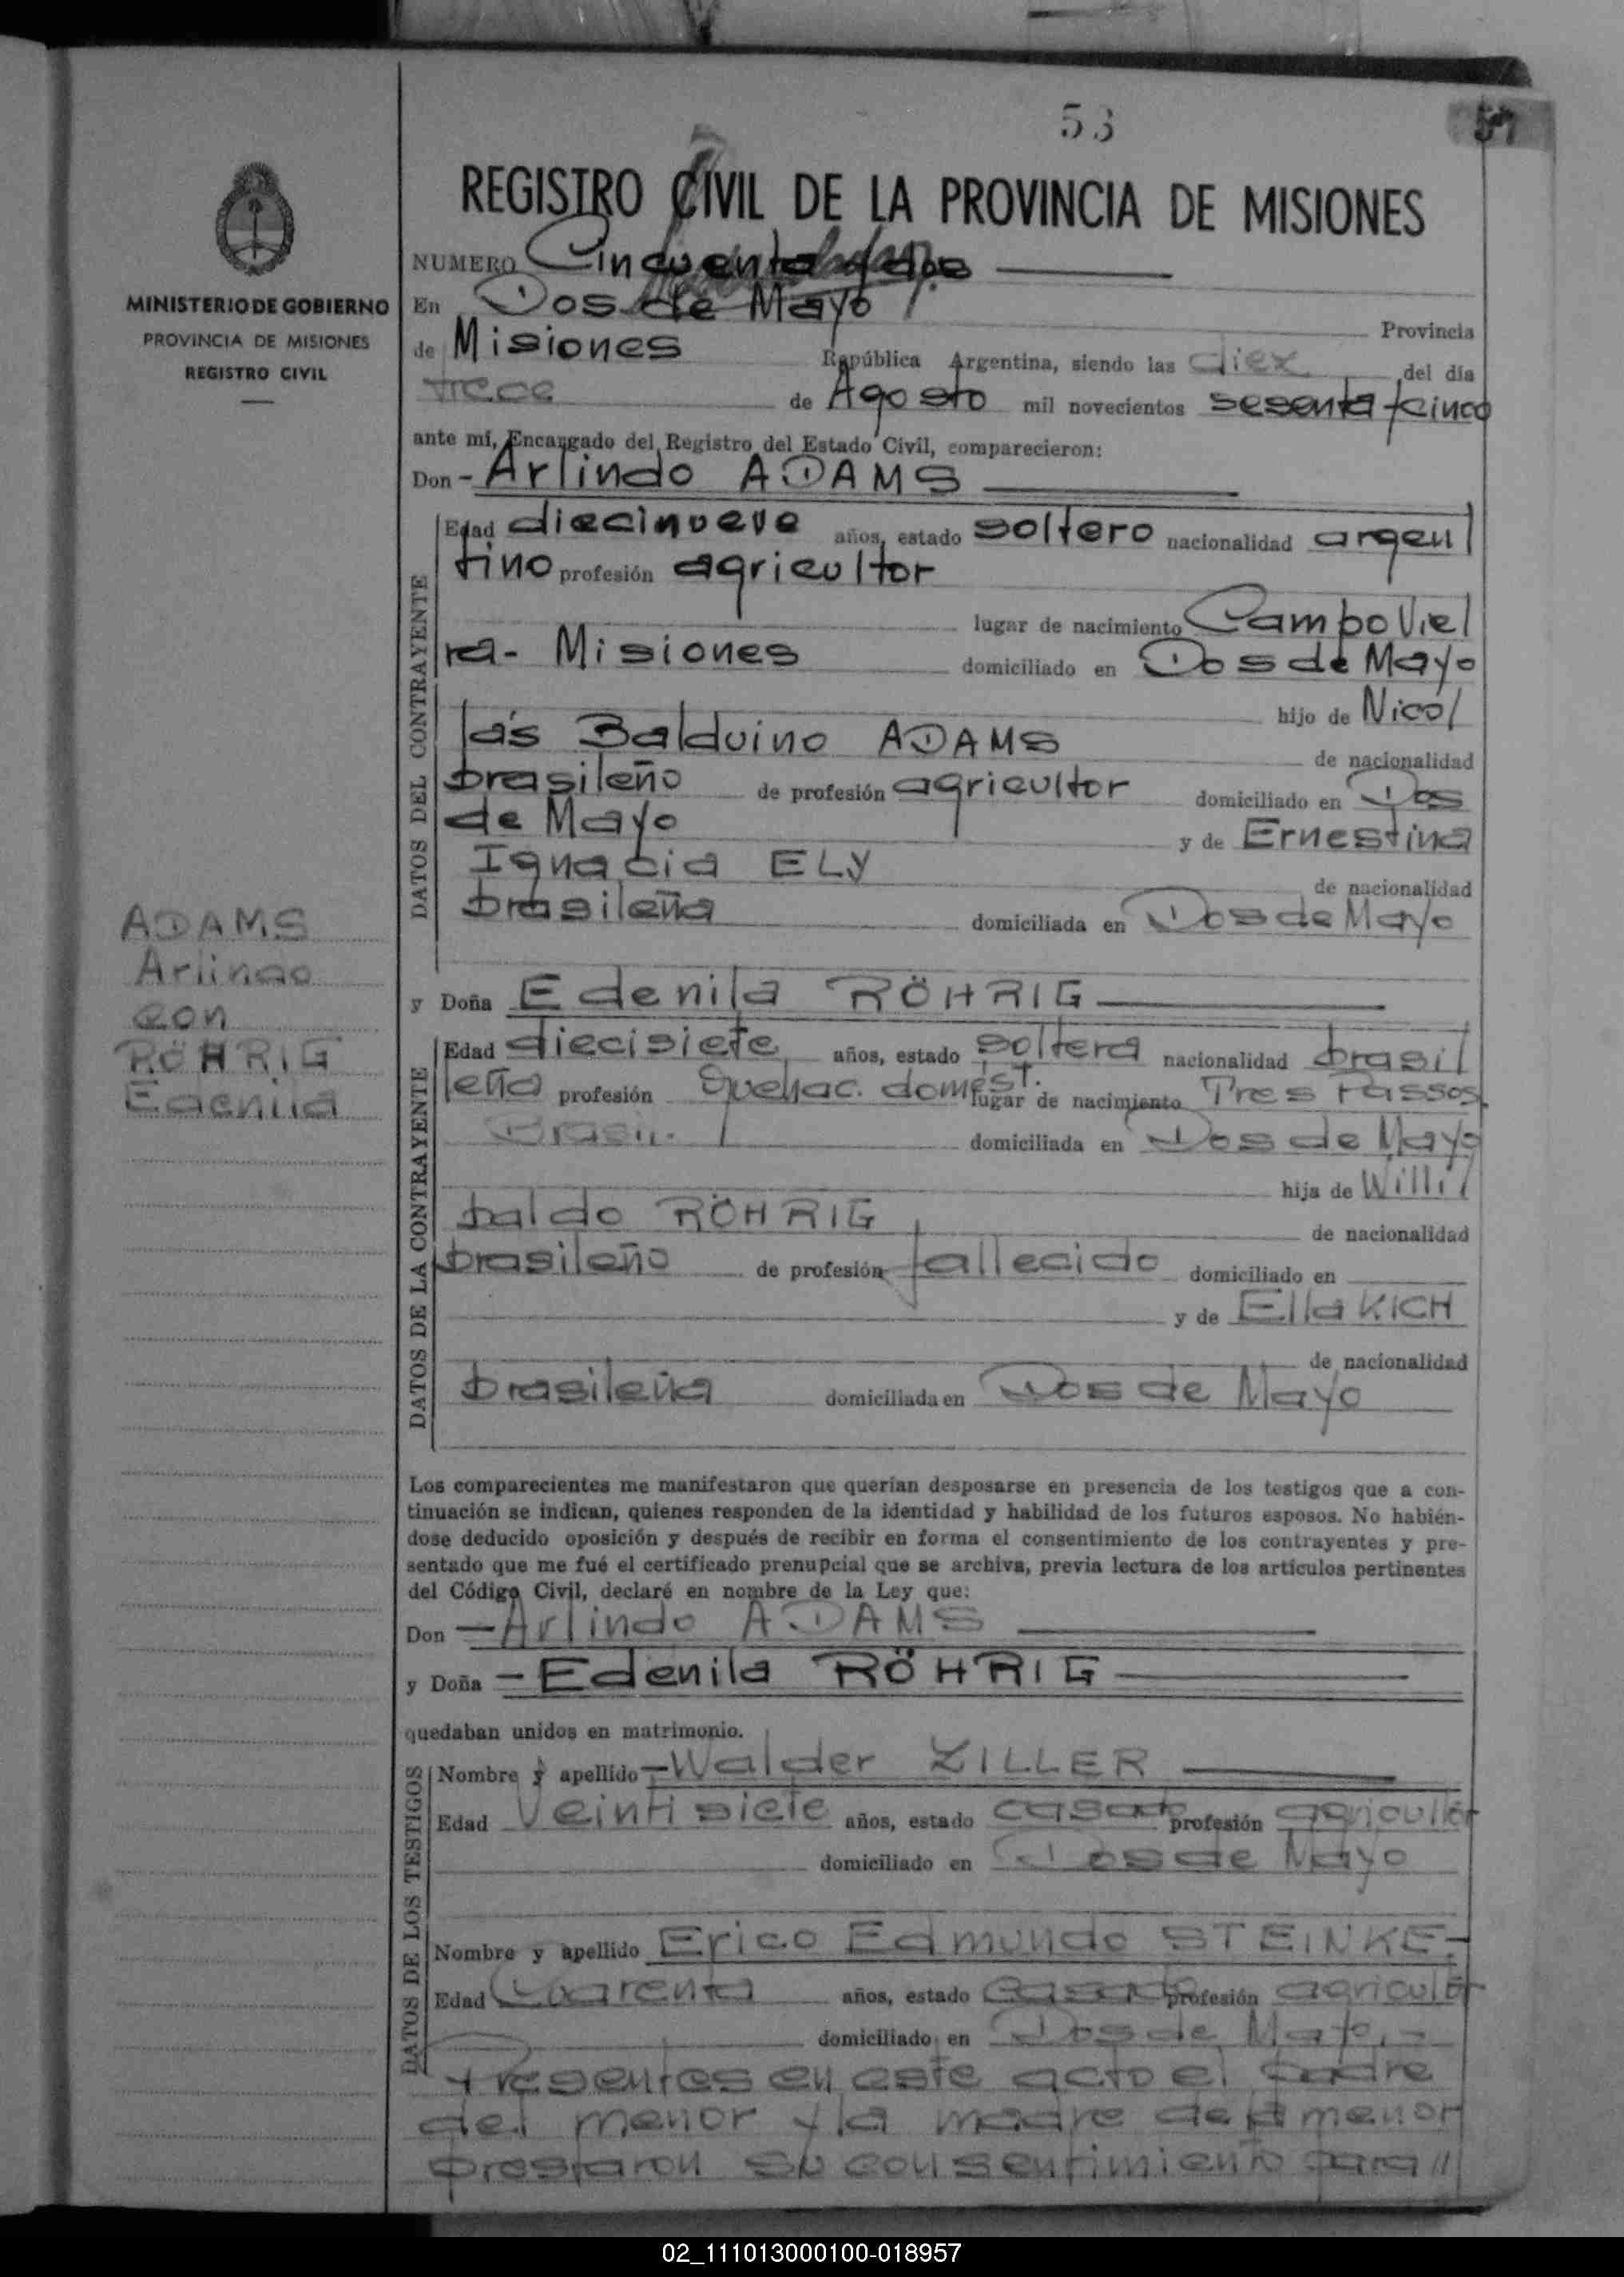 53
57
REGISTRO CIVIL DE LA PROVINCIA DE MISIONES
MINISTERIO DE GOBIERNO
PROVINCIA DE MISIONES
REGISTRO CIVIL
NUMERO Cincuenta y dos
En Dos de Mayo Provincia
de Misiones República Argentina, siendo las diez del día
trece de Agosto mil novecientos sesenta y cinco
ante mí, Encargado del Registro del Estado Civil, comparecieron:
Don - Arlindo ADAMS
DATOS DEL CONTRAYENTE
Edad diecinueve años, estado soltero nacionalidad argen/
tino profesión agricultor
lugar de nacimiento Campo Vie/
ra - Misiones domiciliado en Dos de Mayo
hijo de Nico/
lás Balduino ADAMS de nacionalidad
brasileño de profesión agricultor domiciliado en Dos
de Mayo y de Ernestina
Ignacia ELY de nacionalidad
brasileña domiciliada en Dos de Mayo
ADAMS
Arlindo
con
RÖHRIG
Edenila
y Doña Edenila RÖHRIG
DATOS DE LA CONTRAYENTE
Edad diecisiete años, estado soltera nacionalidad brasi/
leña profesión Quehac. domést. lugar de nacimiento Tres Passos
Brasil. domiciliada en Dos de Mayo
hija de Willi/
baldo RÖHRIG de nacionalidad
brasileño de profesión fallecido domiciliado en
y de Ella KICH
de nacionalidad
brasileña domiciliada en Dos de Mayo
Los comparecientes me manifestaron que querían desposarse en presencia de los testigos que a con-
tinuación se indican, quienes responden de la identidad y habilidad de los futuros esposos. No habién-
dose deducido oposición y después de recibir en forma el consentimiento de los contrayentes y pre-
sentado que me fué el certificado prenupcial que se archiva, previa lectura de los artículos pertinentes
del Código Civil, declaré en nombre de la Ley que:
Don - Arlindo ADAMS
y Doña - Edenila RÖHRIG
quedaban unidos en matrimonio.
DATOS DE LOS TESTIGOS
Nombre y apellido - Walder ZILLER
Edad Veintisiete años, estado casado profesión agricultor
domiciliado en Dos de Mayo
Nombre y apellido Erico Edmundo STEINKE.-
Edad Cuarenta años, estado casado profesión agricultor
domiciliado en Dos de Mayo.-
Presentes en este acto el padre
del menor y la madre de la menor
prestaron su consentimiento para //
02_111013000100-018957